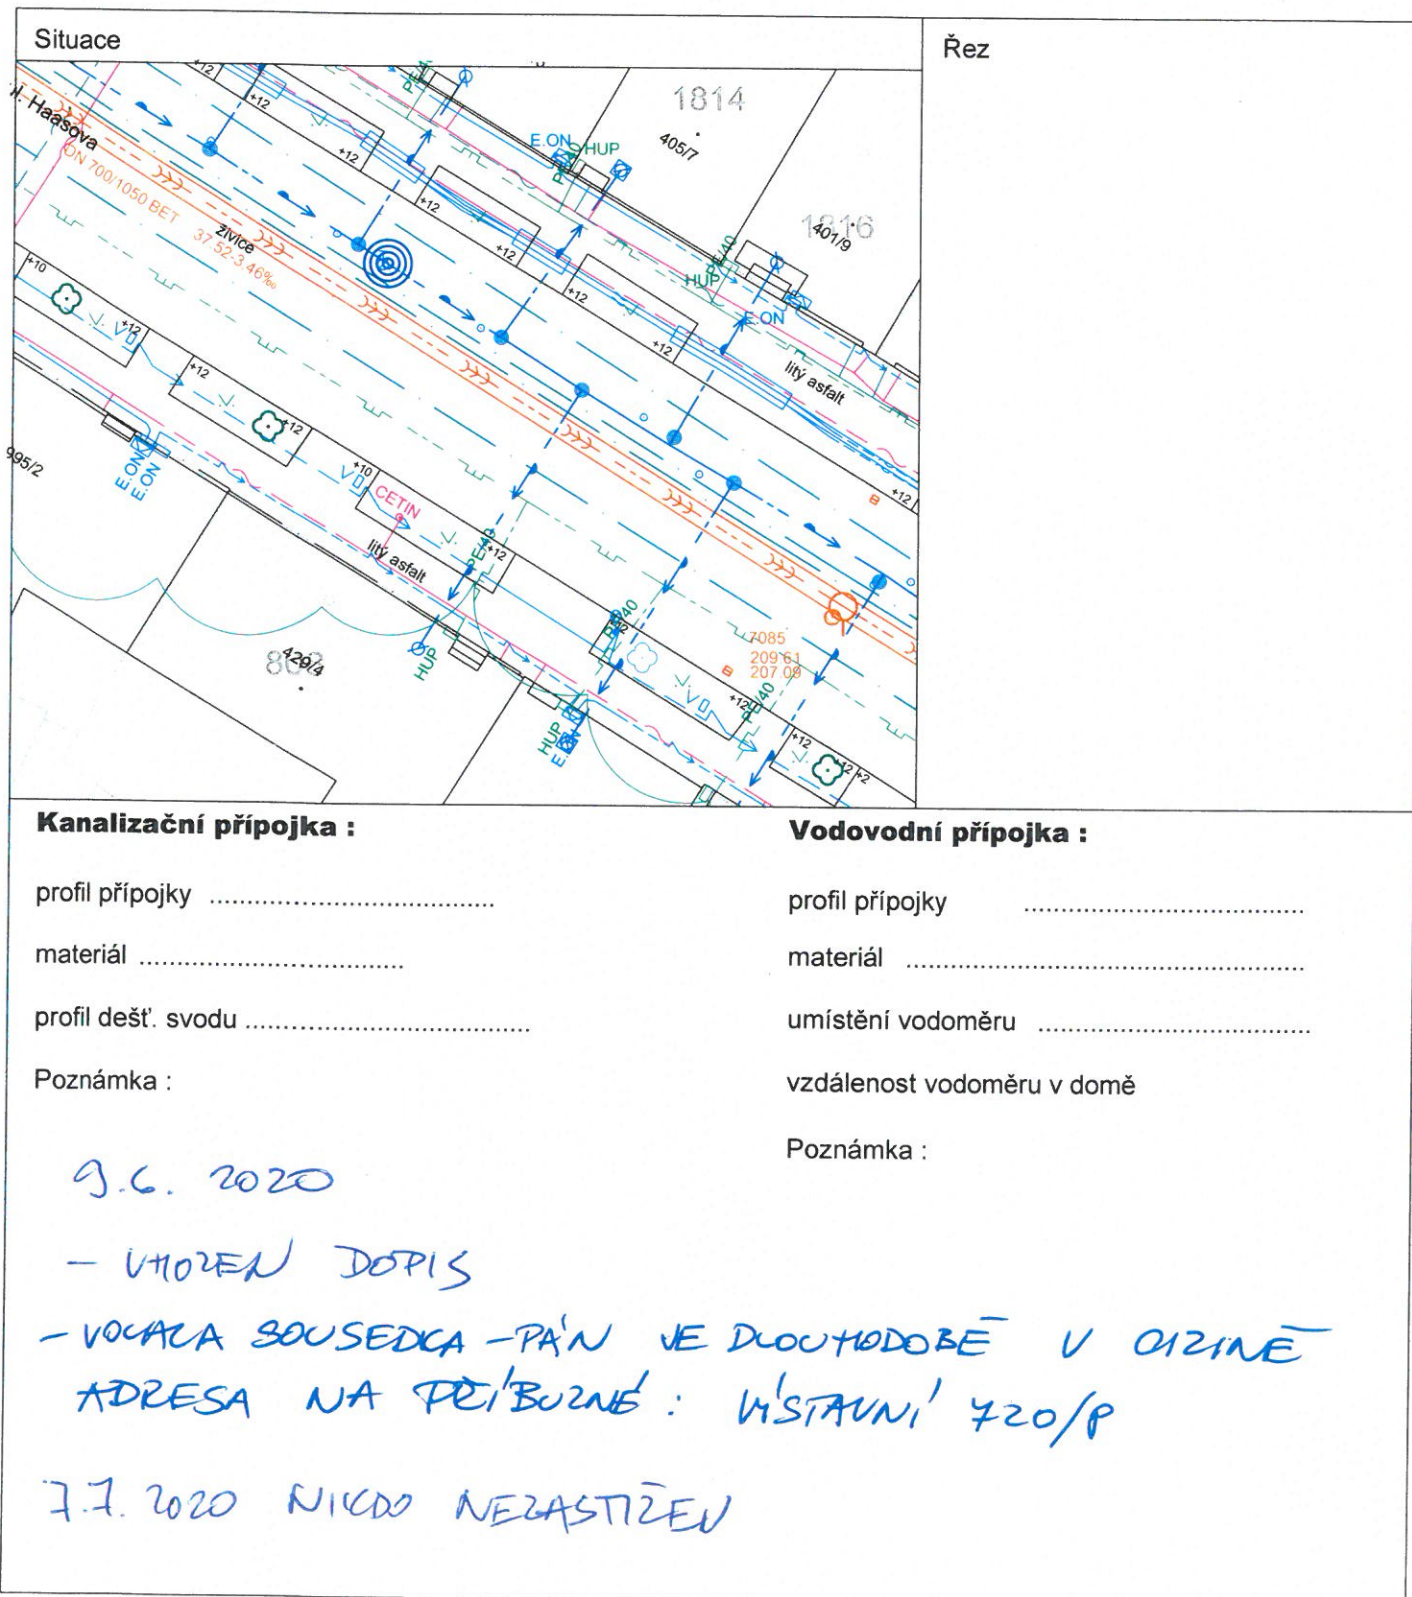 Situace
Řez
ul. Haasova
DN 700/1050 BET
37.52-3.46‰
živice
1814
405/7
1816
401/9
E.ON
HUP
PE40
HUP
E.ON
litý asfalt
+12
+12
+12
+12
+12
+12
+12
+12
+12
+10
+12
+12
+12
+10
+12
995/2
E.ON
E.ON
CETIN
litý asfalt
PE40
HUP
429/4
HUP
E.ON
7085
209.61
207.09
+12
+12
+12
+2
Kanalizační přípojka :
profil přípojky ......................................
materiál ...................................
profil dešť. svodu ......................................
Poznámka :
Vodovodní přípojka :
profil přípojky .....................................
materiál .....................................................
umístění vodoměru ....................................
vzdálenost vodoměru v domě
Poznámka :
9.6. 2020
- VHOZEN DOPIS
- VOLALA SOUSEDKA - PÁN JE DLOUHODOBĚ V CIZINĚ
ADRESA NA PŘÍBUZNÉ : VÍSTAVNÍ 720/8
7.7. 2020 NIKDO NEZASTIŽEN